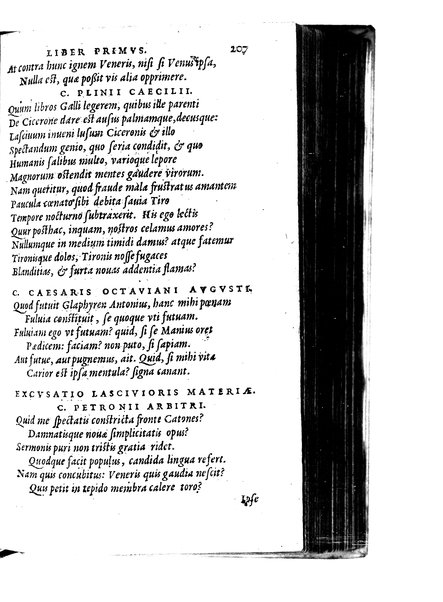 LIBER PRIMVS. 207
At contra hunc ignem Veneris, nisi si Venus ipsa,
Nulla est, quæ poßit vis alia opprimere.
C. PLINII CAECILII.
Quum libros Galli legerem, quibus ille parenti
De Cicerone dare est ausus palmamque, decusque:
Lasciuum inueni lusum Ciceronis & illo
Spectandum genio, quo seria condidit, & quo
Humanis salibus multo, varioque lepore
Magnorum ostendit mentes gaudere virorum.
Nam queritur, quod fraude mala frustratus amantem
Paucula cœnato sibi debita sauia Tiro
Tempore nocturno subtraxerit. His ego lectis
Quur posthac, inquam, nostros celamus amores?
Nullumque in medium timidi damus? atque fatemur
Tironisque dolos, Tironis nosse fugaces
Blanditias, & furta nouas addentia flamas?
C. CAESARIS OCTAVIANI AVGVSTI.
Quod futuit Glaphyren Antonius, hanc mihi pœnam
Fuluia constituit, se quoque vti futuam.
Fuluiam ego vt futuam? quid, si se Manius oret
Pædicem: faciam? non puto, si sapiam.
Aut futue, aut pugnemus, ait. Quid, si mihi vita
Carior est ipsa mentula? signa canant.
EXCVSATIO LASCIVIORIS MATERIÆ.
C. PETRONII ARBITRI.
Quid me spectatis constricta fronte Catones?
Damnatisque nouæ simplicitatis opus?
Sermonis puri non tristis gratia ridet.
Quodque facit populus, candida lingua refert.
Nam quis concubitus: Veneris quis gaudia nescit?
Quis petit in tepido membra calere toro?
Ipse